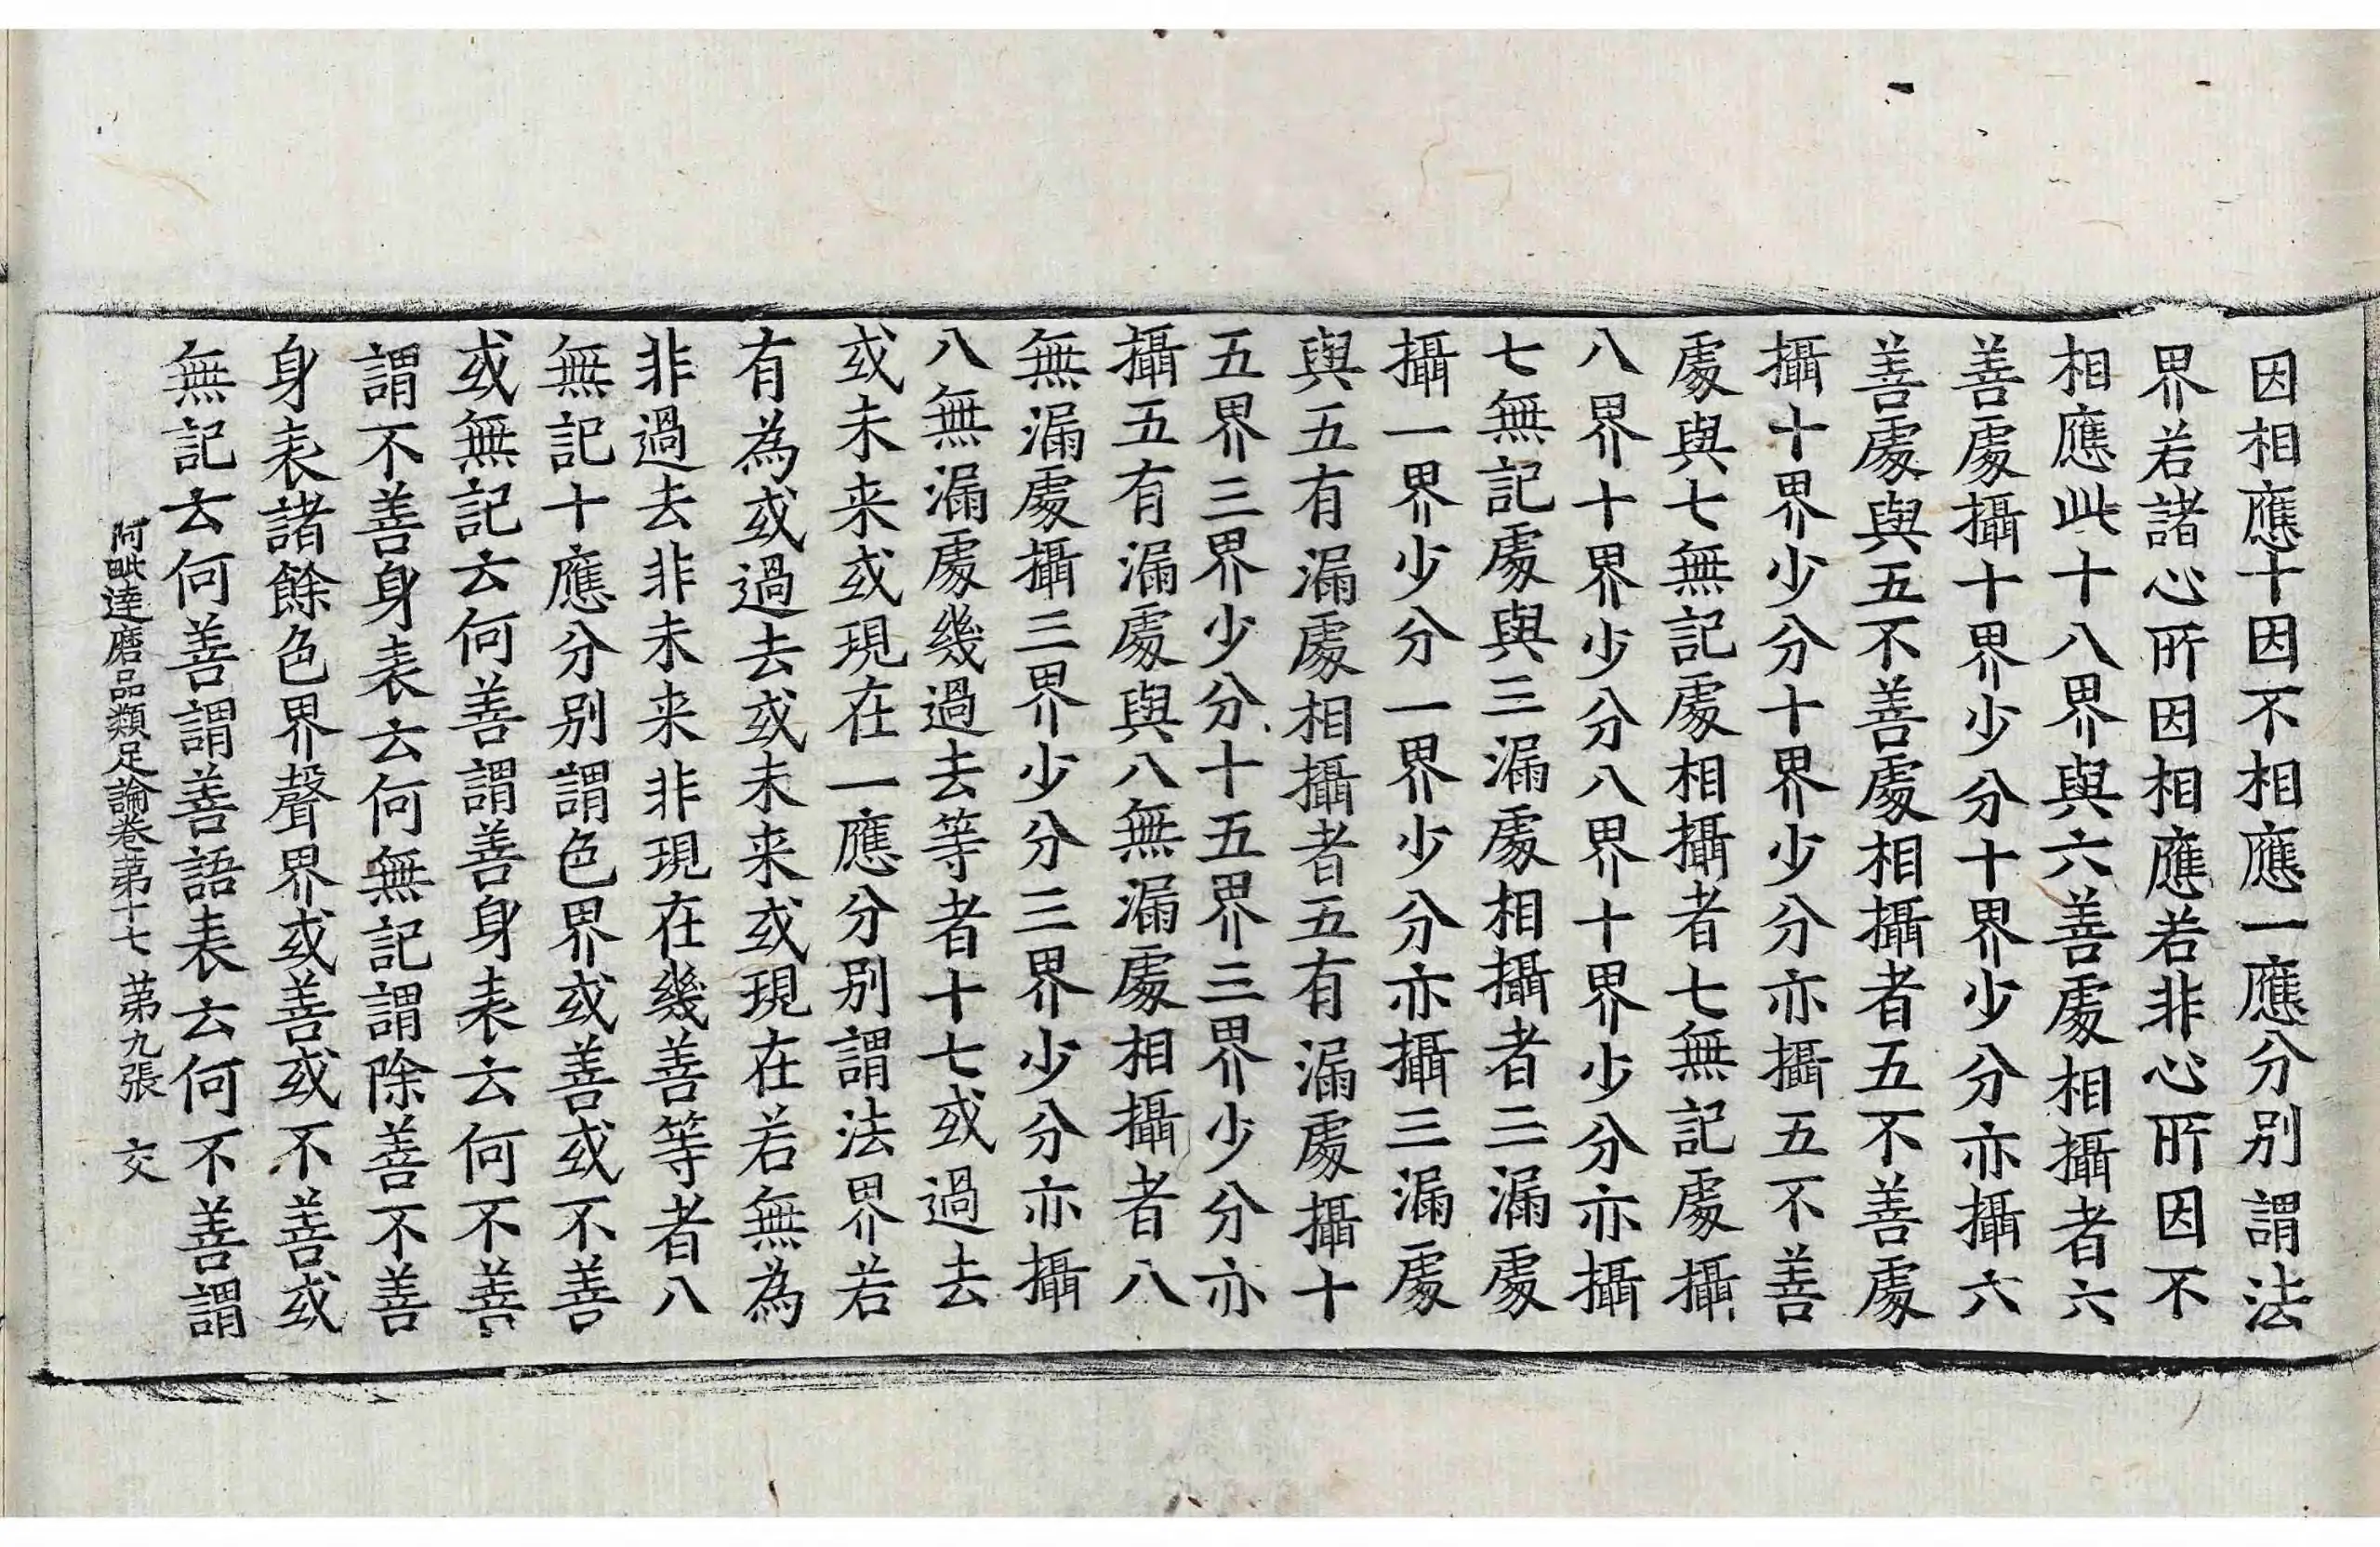 因相應十因不相應一應分别謂法
界若諸心所因相應若非心所因不
相應此十八界與六善處相攝者六
善處攝十界少分十界少分亦攝六
善處與五不善處相攝者五不善處
攝十界少分十界少分亦攝五不善
處與七無記處相攝者七無記處攝
八界十界少分八界十界少分亦攝
七無記處與三漏處相攝者三漏處
攝一界少分一界少分亦攝三漏處
與五有漏處相攝者五有漏處攝十
五界三界少分十五界三界少分亦
攝五有漏處與八無漏處相攝者八
無漏處攝三界少分三界少分亦攝
八無漏處幾過去等者十七或過去
或未来或現在一應分别謂法界若
有為或過去或未来或現在若無為
非過去非未来非現在幾善等者八
無記十應分别謂色界或善或不善
或無記云何善謂善身表云何不善
謂不善身表云何無記謂除善不善
身表諸餘色界聲界或善或不善或
無記云何善謂善語表云何不善謂
阿毗達磨品類足論卷苐十七 苐九張 交